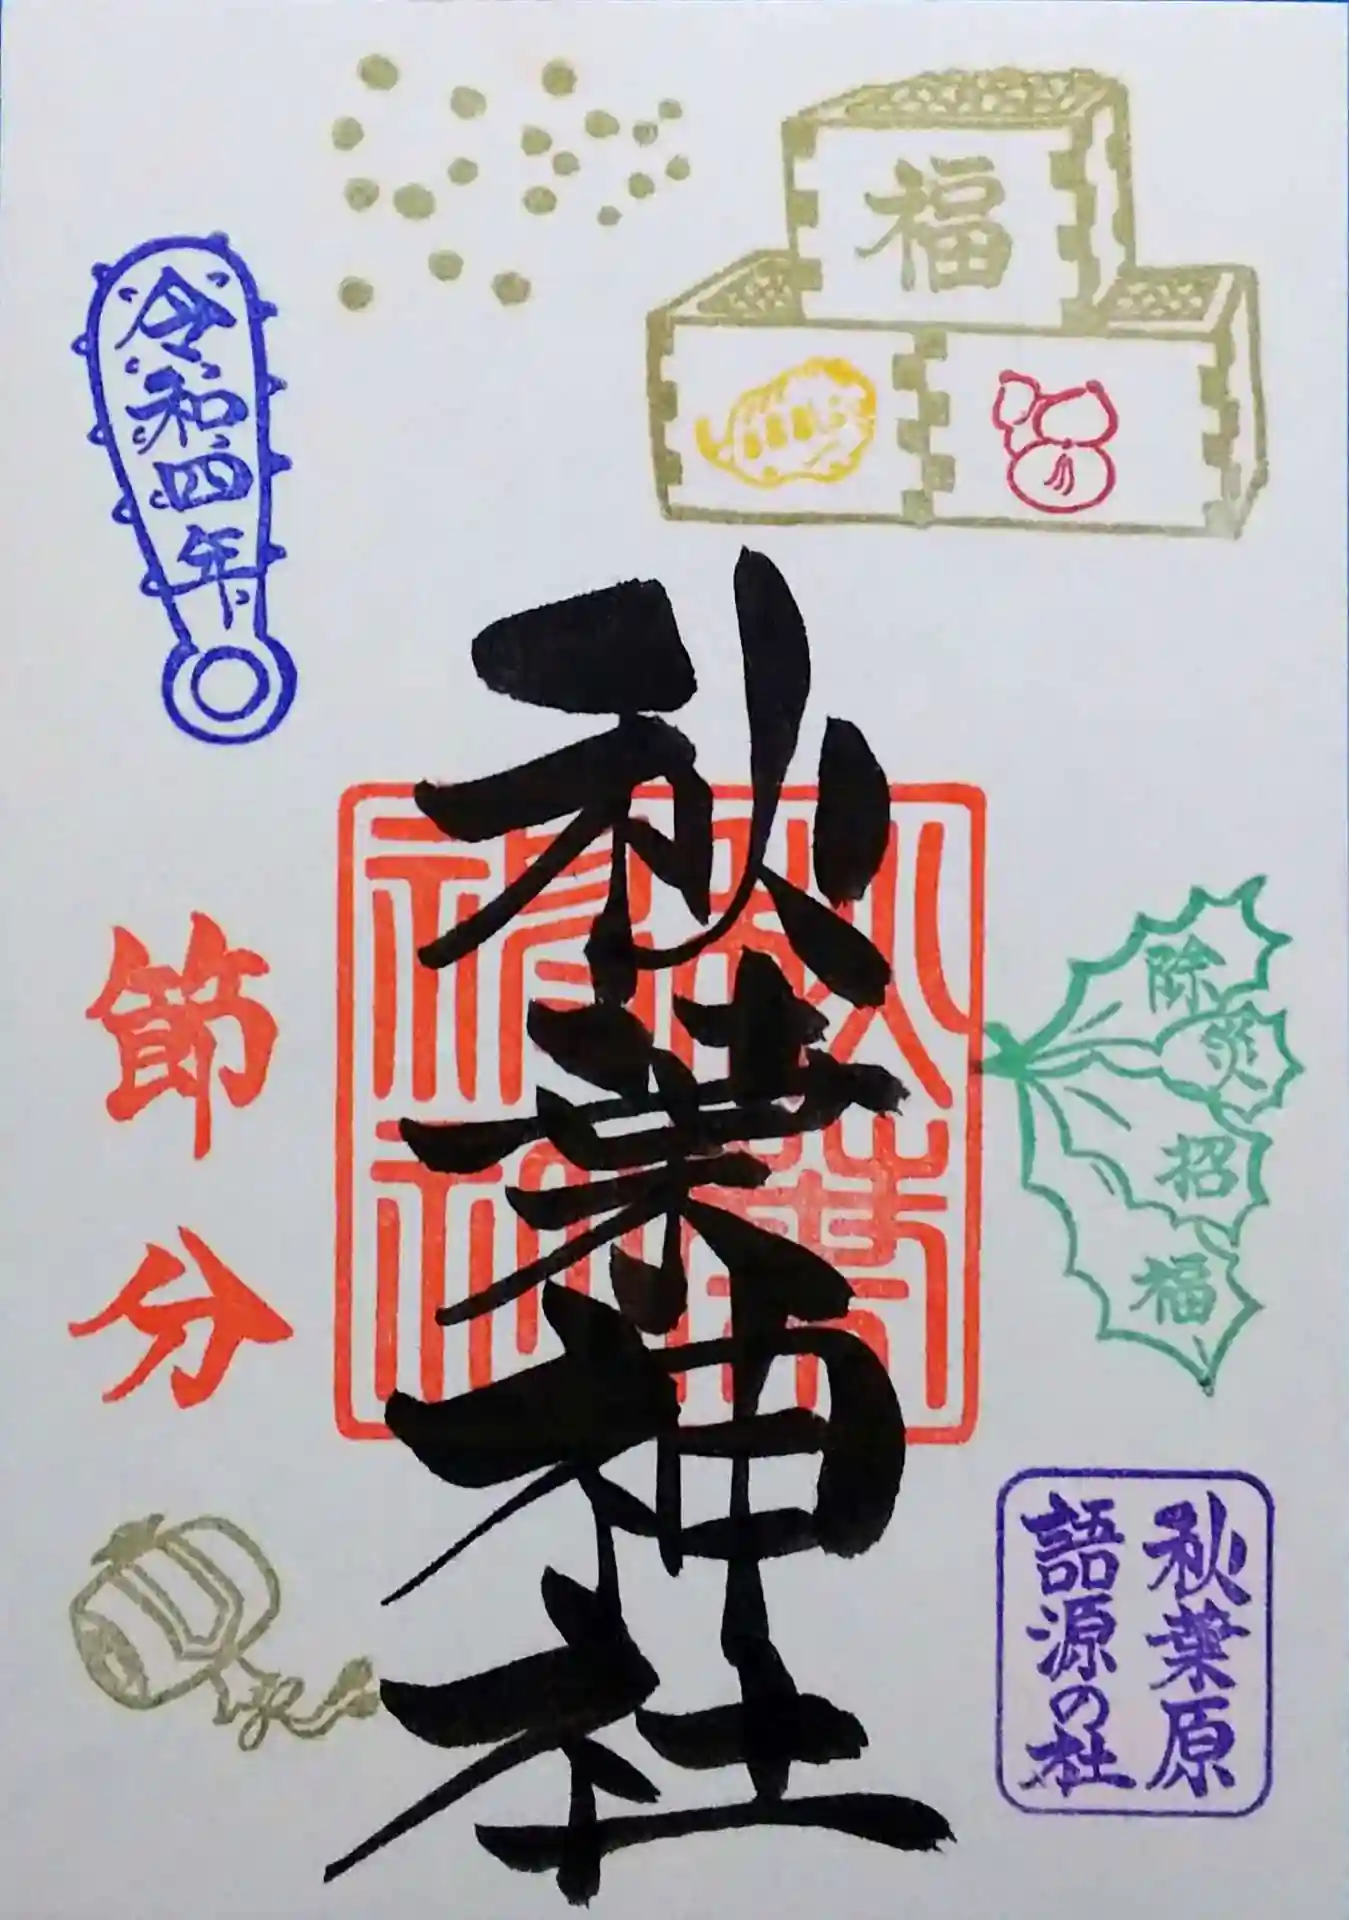 福
令和四年
秋葉神社
節分
除災招福
秋葉原
語源の社